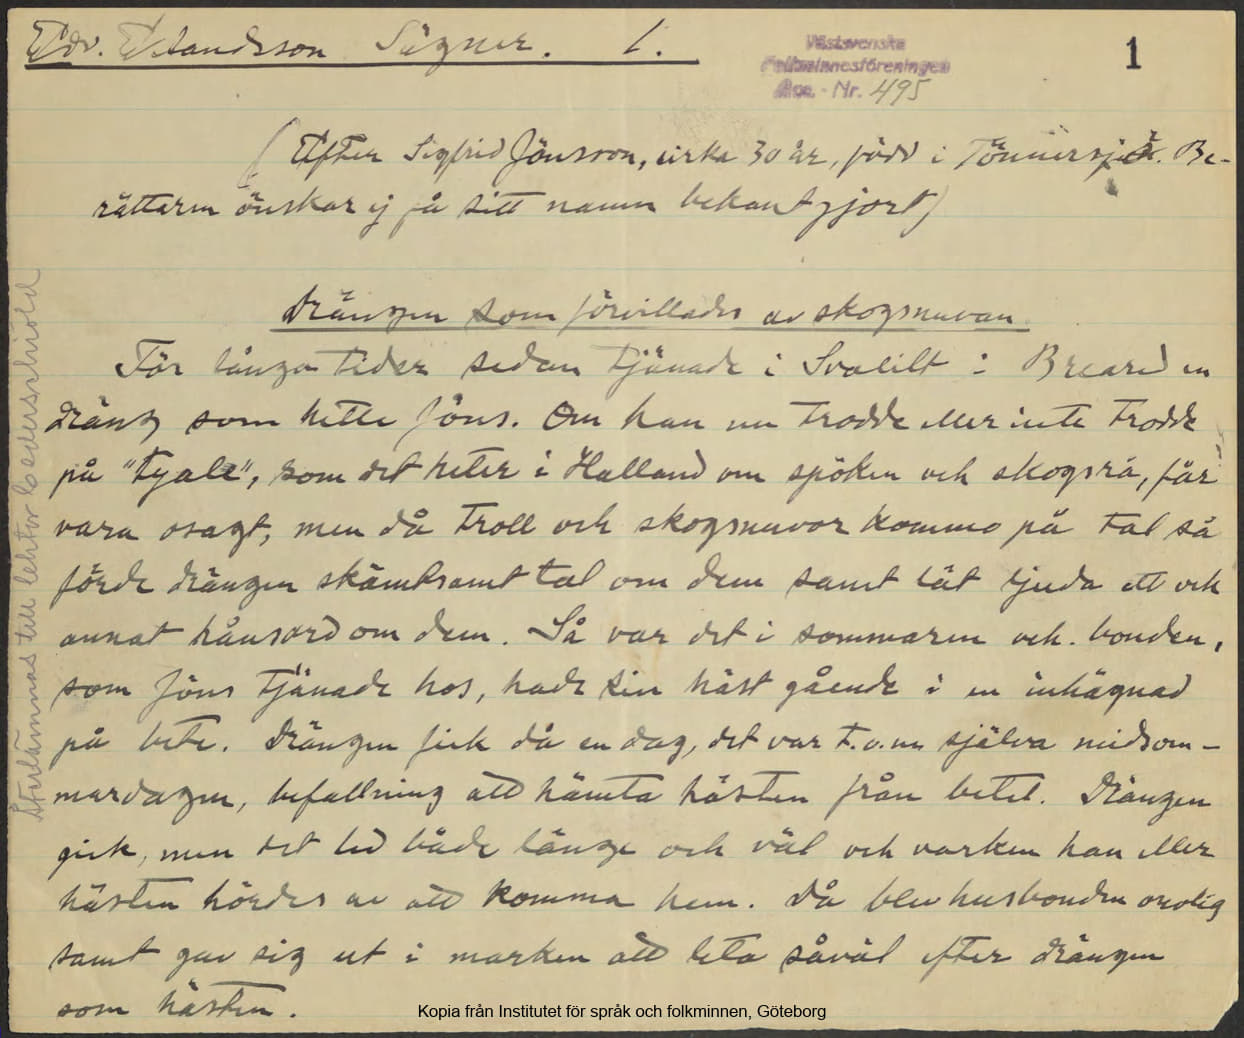 Edv. Erlandsson Sägner. 1.
Västsvenska
Folkminnesföreningen
Acc. - Nr. 495
1
(Efter Sigfrid Jönsson, cirka 30 år, född i Tönnersjö. Be-
rättaren önskar ej få sitt namn bekantgjort)
Drängen som förvillades av skogsnuvan
För långa tider sedan tjänade i Svalilt i Breared en
dräng som hette Jöns. Om han nu trodde eller inte trodde
på "tyale", som det heter i Halland om spöken och skogsrå, får
vara osagt, men då troll och skogsnuvor kommo på tal så
förde drängen skämtsamt tal om dem samt lät ljuda ett och
annat hånsord om dem. Så var det i sommaren och bonden,
som Jöns tjänade hos, hade sin häst gående i en inhägnad
på bete. Drängen fick då en dag, det var t.o.m. själva midsom-
mardagen, befallning att hämta hästen från betet. Drängen
gick, men det led både länge och väl och varken han eller
hästen hördes av att komma hem. Då blev husbonden orolig
samt gav sig ut i marken att leta såväl efter drängen
som hästen.
Återlämnas till lektor
Kopia från Institutet för språk och folkminnen, Göteborg